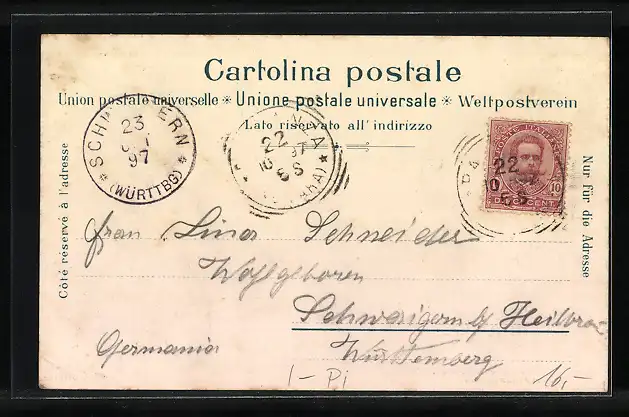 Cartolina postale
Union postale universelle * Unione postale universale * Weltpostverein
Lato riservato all' indirizzo
Côté réservé à l'adresse
Nur für die Adresse
23
97
* (WÜRTTBG) *
22
10 97
8 S
POSTE ITALIANE
22
10
10
DIECI CENT.
Frau Lina Schneider
Wohlgeboren
Schwaigern b/ Heilbronn
Germania
Württemberg
16,-